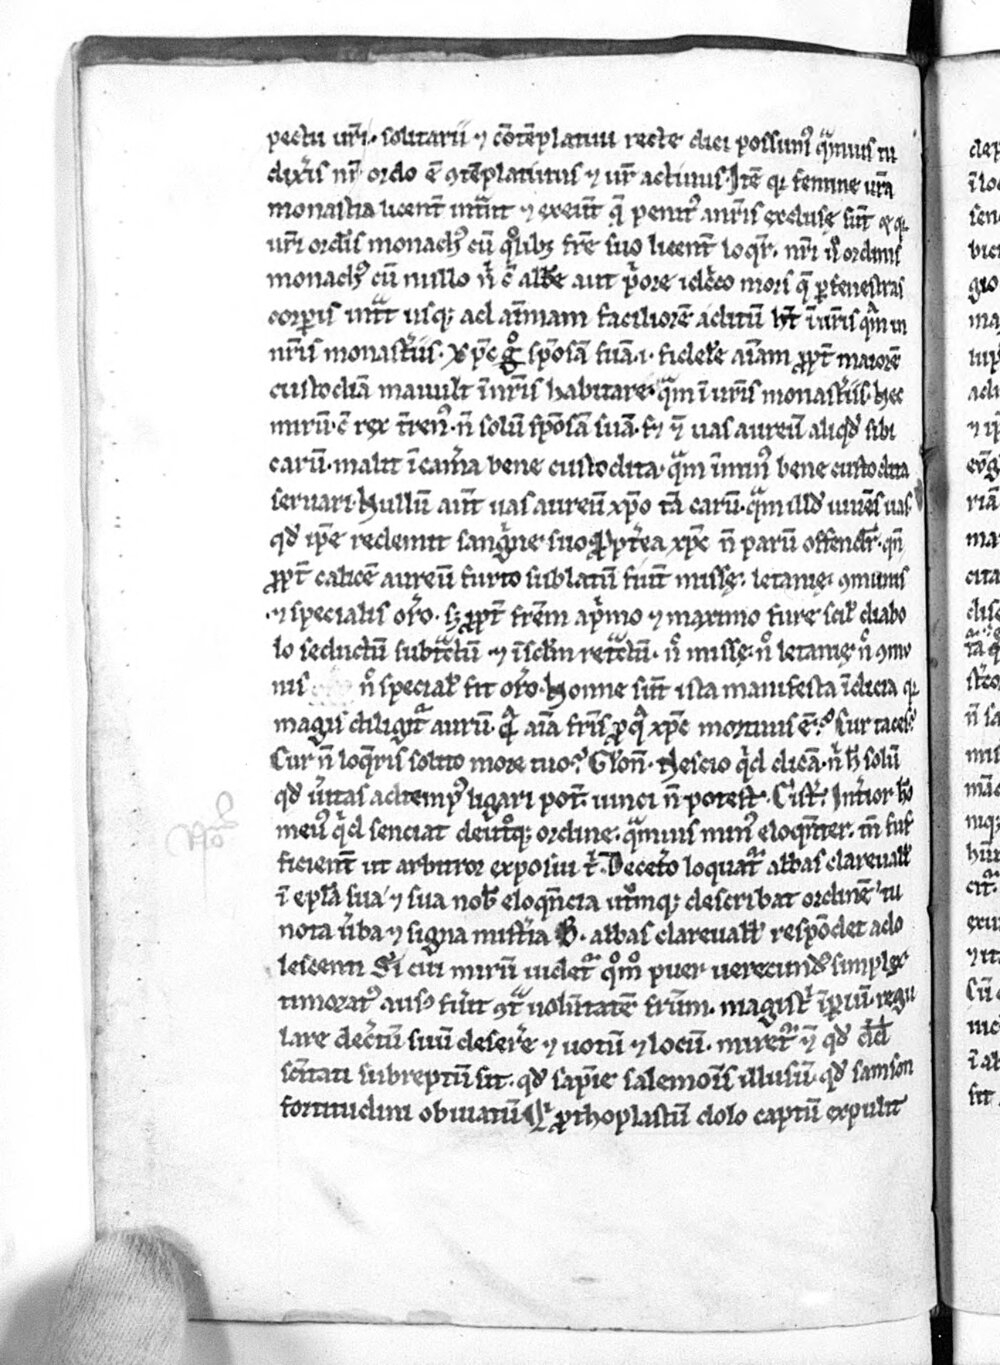 pectu ur̄i. solitarii ⁊ cōtēplatiui recte dici possumꝰ qͣmuis tu
dixͥis nr̄ ordo ē ꝯtēplatiuus ⁊ ur̄ actiuus. Itē qꝛ femine ur̄a
monastia licent̄ intͣnt ⁊ exeūt q̄ penitꝰ a nr̄is excluse sūt ⁊ qꝛ
ur̄i ordīs monachꝰ cū qͦlibꝫ fr̄e suo licent̄ loqͥr. nr̄i ū ordinis
monachꝰ cū nullo nͥ cͣ abbe aut pͥore idcͥco mors q̄ ꝑ fenestras
corꝑis intͣt usqꝫ ad aīmam faciliorē aditū ht̄ ī ur̄is qͣm in
nr̄is monastͥiis. Xp̄c gͦ spōsā suā .i. fidelē aīam ꝓpt̄ maiorē
custodiā mauult ī nr̄is habitare. qͣm ī ur̄is monastͥiis. hec
mirū. cͥ rex tr̄enꝰ. n̄ solū spōsā suā. sꝫ ⁊ uas aureū aliqd̄ sibi
carū. malit ī camͥa bene custodita. qͣm ī minꝰ bene custodita
seruari. Nullū aut̄ uas aureū xp̄o tā carū. qͣm illd̄ uiuēs uas
qd̄ ip̄e redemit sangͥne suo. Propt̄ea xp̄c n̄ parū offendit̄. qn̄
ꝓpt̄ calicē aureū furto sublatū fiūt misse. letanie. ꝯmunis
⁊ specialis or̄o. sꝫ ꝓpt̄ fr̄em a pͥmo ⁊ maximo fure scilꝫ diabo
lo seductū subtͣctū ⁊ ī sclm̄ retͣctū. nͦ misse. nͦ letanie nͦ ꝯmu
nis nͦ special̄ fit or̄o. Nonne sūt ista manifesta īdicia qꝛ
magis diligitͥ aurū. qͣ aīa fr̄is ꝓ qͣ xp̄c mortuus ē? Cur taces?
Cur n̄ loqͥris solito more tuo? Clun̄. Nescio qͥd dicā. nͥ h̄ solū
qd̄ uͥitas ad tempꝰ ligari pot̄. uinci n̄ potest. Cist̄. Intͥior hō
meꝰ qͥd senciat de utͦqꝫ ordine. qͣmuis minꝰ eloqͥnter. tn̄ suf
ficient̄ ut arbitror exposui tͥ. De cetͥo loquatͥ abbas clareuall̄
ī ep̄la sua ⁊ sua nob̄ eloqͥncia utͦmqꝫ describat ordinē. tu
nota ūba ⁊ signa mistͥia B. abbas clareuall̄ respōdet ado
lescenti Si cui mirū uidetͥ qͦmͦ puer uerecundꝰ simplex
timoratꝰ ausꝰ fūit ꝯtͣ uolūtatē fr̄um. magistͥ īꝑiū. regu
lare decͥtū suū deserͥe ⁊ uotū ⁊ locū. miretͥ ⁊ qd̄ dd̄
sc̄itati subreptū sit. qd̄ sapīe salemoīs illusū. qd̄ samson
fortitudini obuiatū Qͥ ꝓthoplastū dolo captū expulit